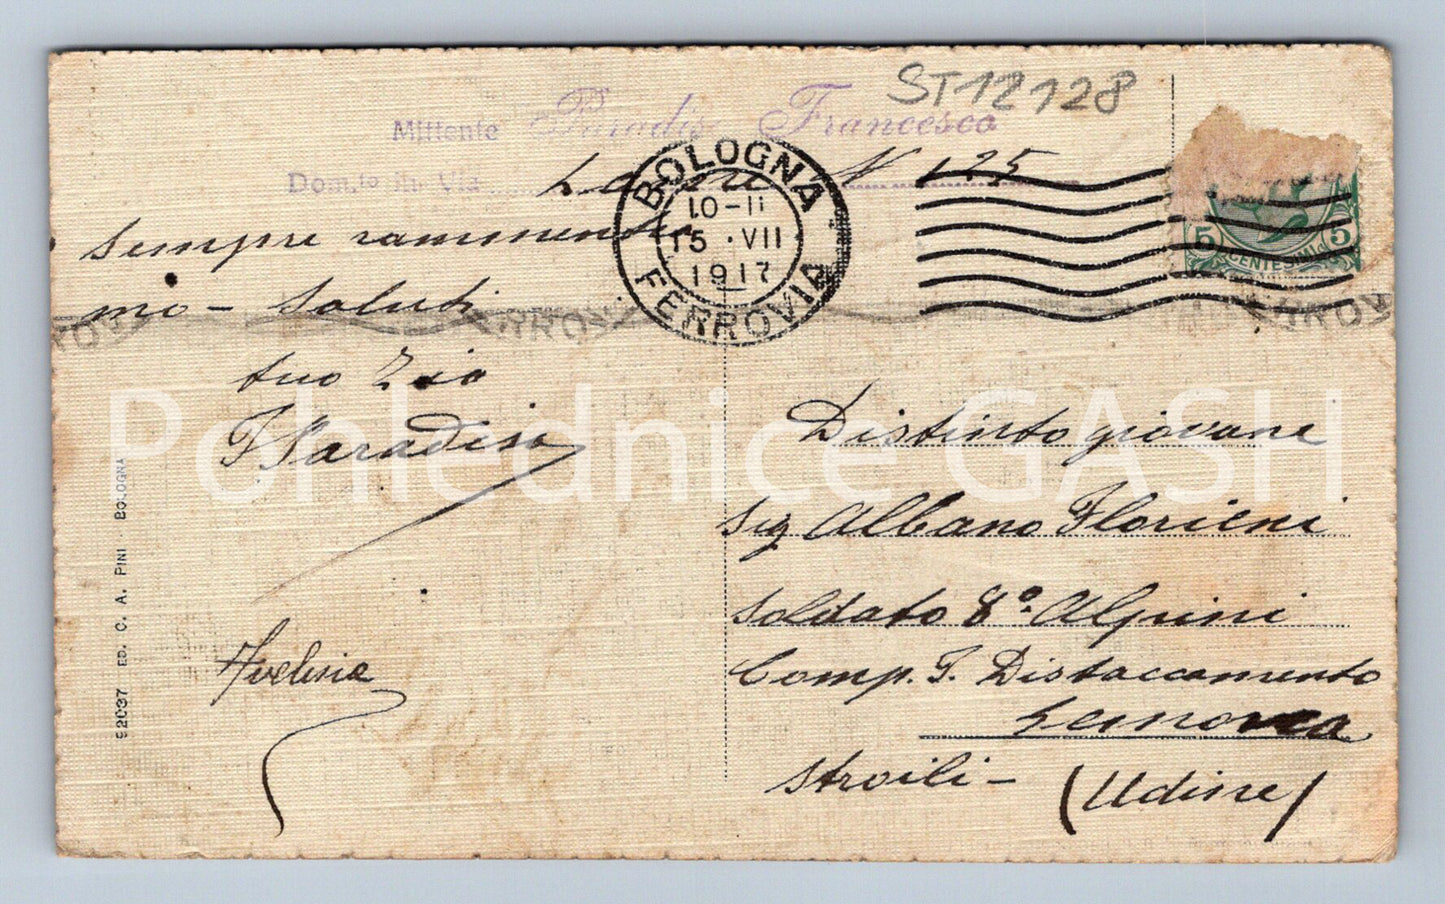 ST12128
Mittente Paradisi Francesco
Dom.to in Via N 125
Sempre rammento
mo - Saluti
tuo Zio
F Paradisi
Avelina
BOLOGNA
10-11
15 · VII
1917
FERROVIA
5 CENTESIMI 5
Distinto giovane
Sig Albano Florieni
Soldato 8° Alpini
Comp. F. Distaccamento
Stroili -
(Udine)
92037 ED. C. A. PINI - BOLOGNA
Pohlednice GASH